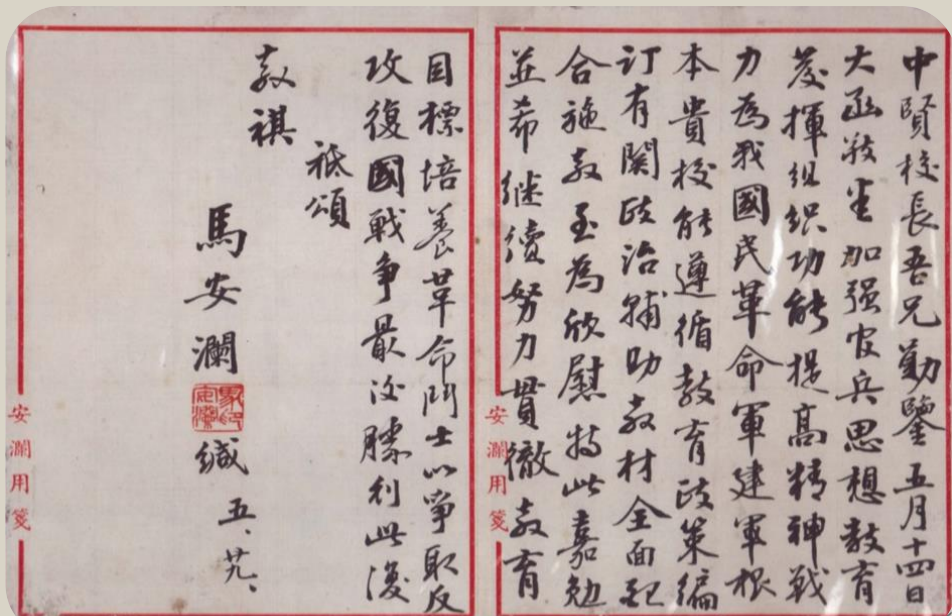 中賢校長吾兄勳鑒五月十四日
大函敬悉加强官兵思想教育
發揮組织功能提高精神戰
力為我國民革命軍建軍根
本貴校能遵循教育政策編
订有關政治輔助教材全面配
合施教至為欣慰特此嘉勉
並希继續努力貫徹教育
安瀾用箋
目標培養革命鬥士以爭取反
攻復國戰爭最後勝利此復
祗頌
教祺
馬安瀾緘 五、廿九、
安瀾用箋